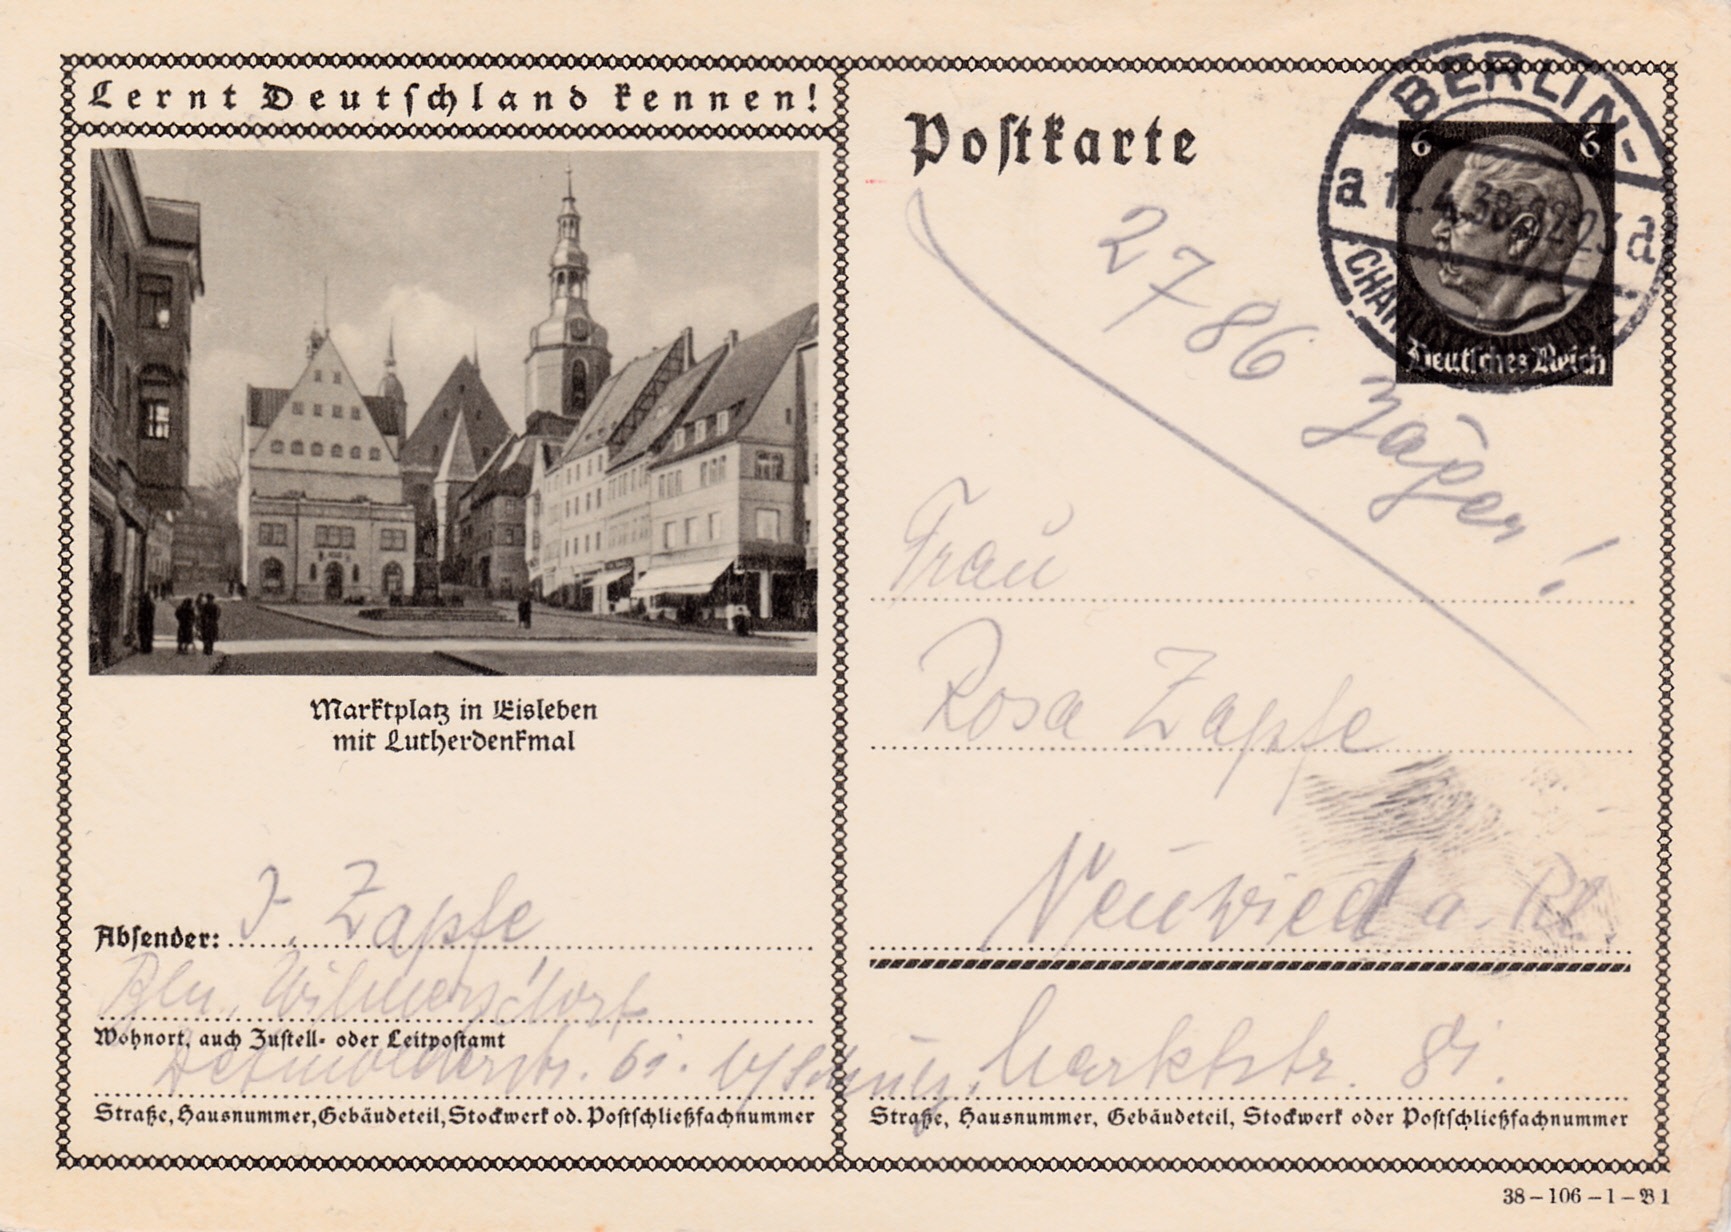 Lernt Deutschland kennen!
Marktplatz in Eisleben
mit Lutherdenkmal
Absender: J. Zapfe,
Bln. Wilmersdorf
Wohnort, auch Zustell- oder Leitpostamt
Detmolderstr. 61. b/Schulz.
Straße, Hausnummer, Gebäudeteil, Stockwerk od. Postschließfachnummer
Postkarte
BERLIN-
a 12.4.38.22-23 a
6 6
Deutsches Reich
2786 Jäger!
Frau
Rosa Zapfe
Neuwied a. Rh.
Marktstr. 81.
Straße, Hausnummer, Gebäudeteil, Stockwerk oder Postschließfachnummer
38–106–1–B 1